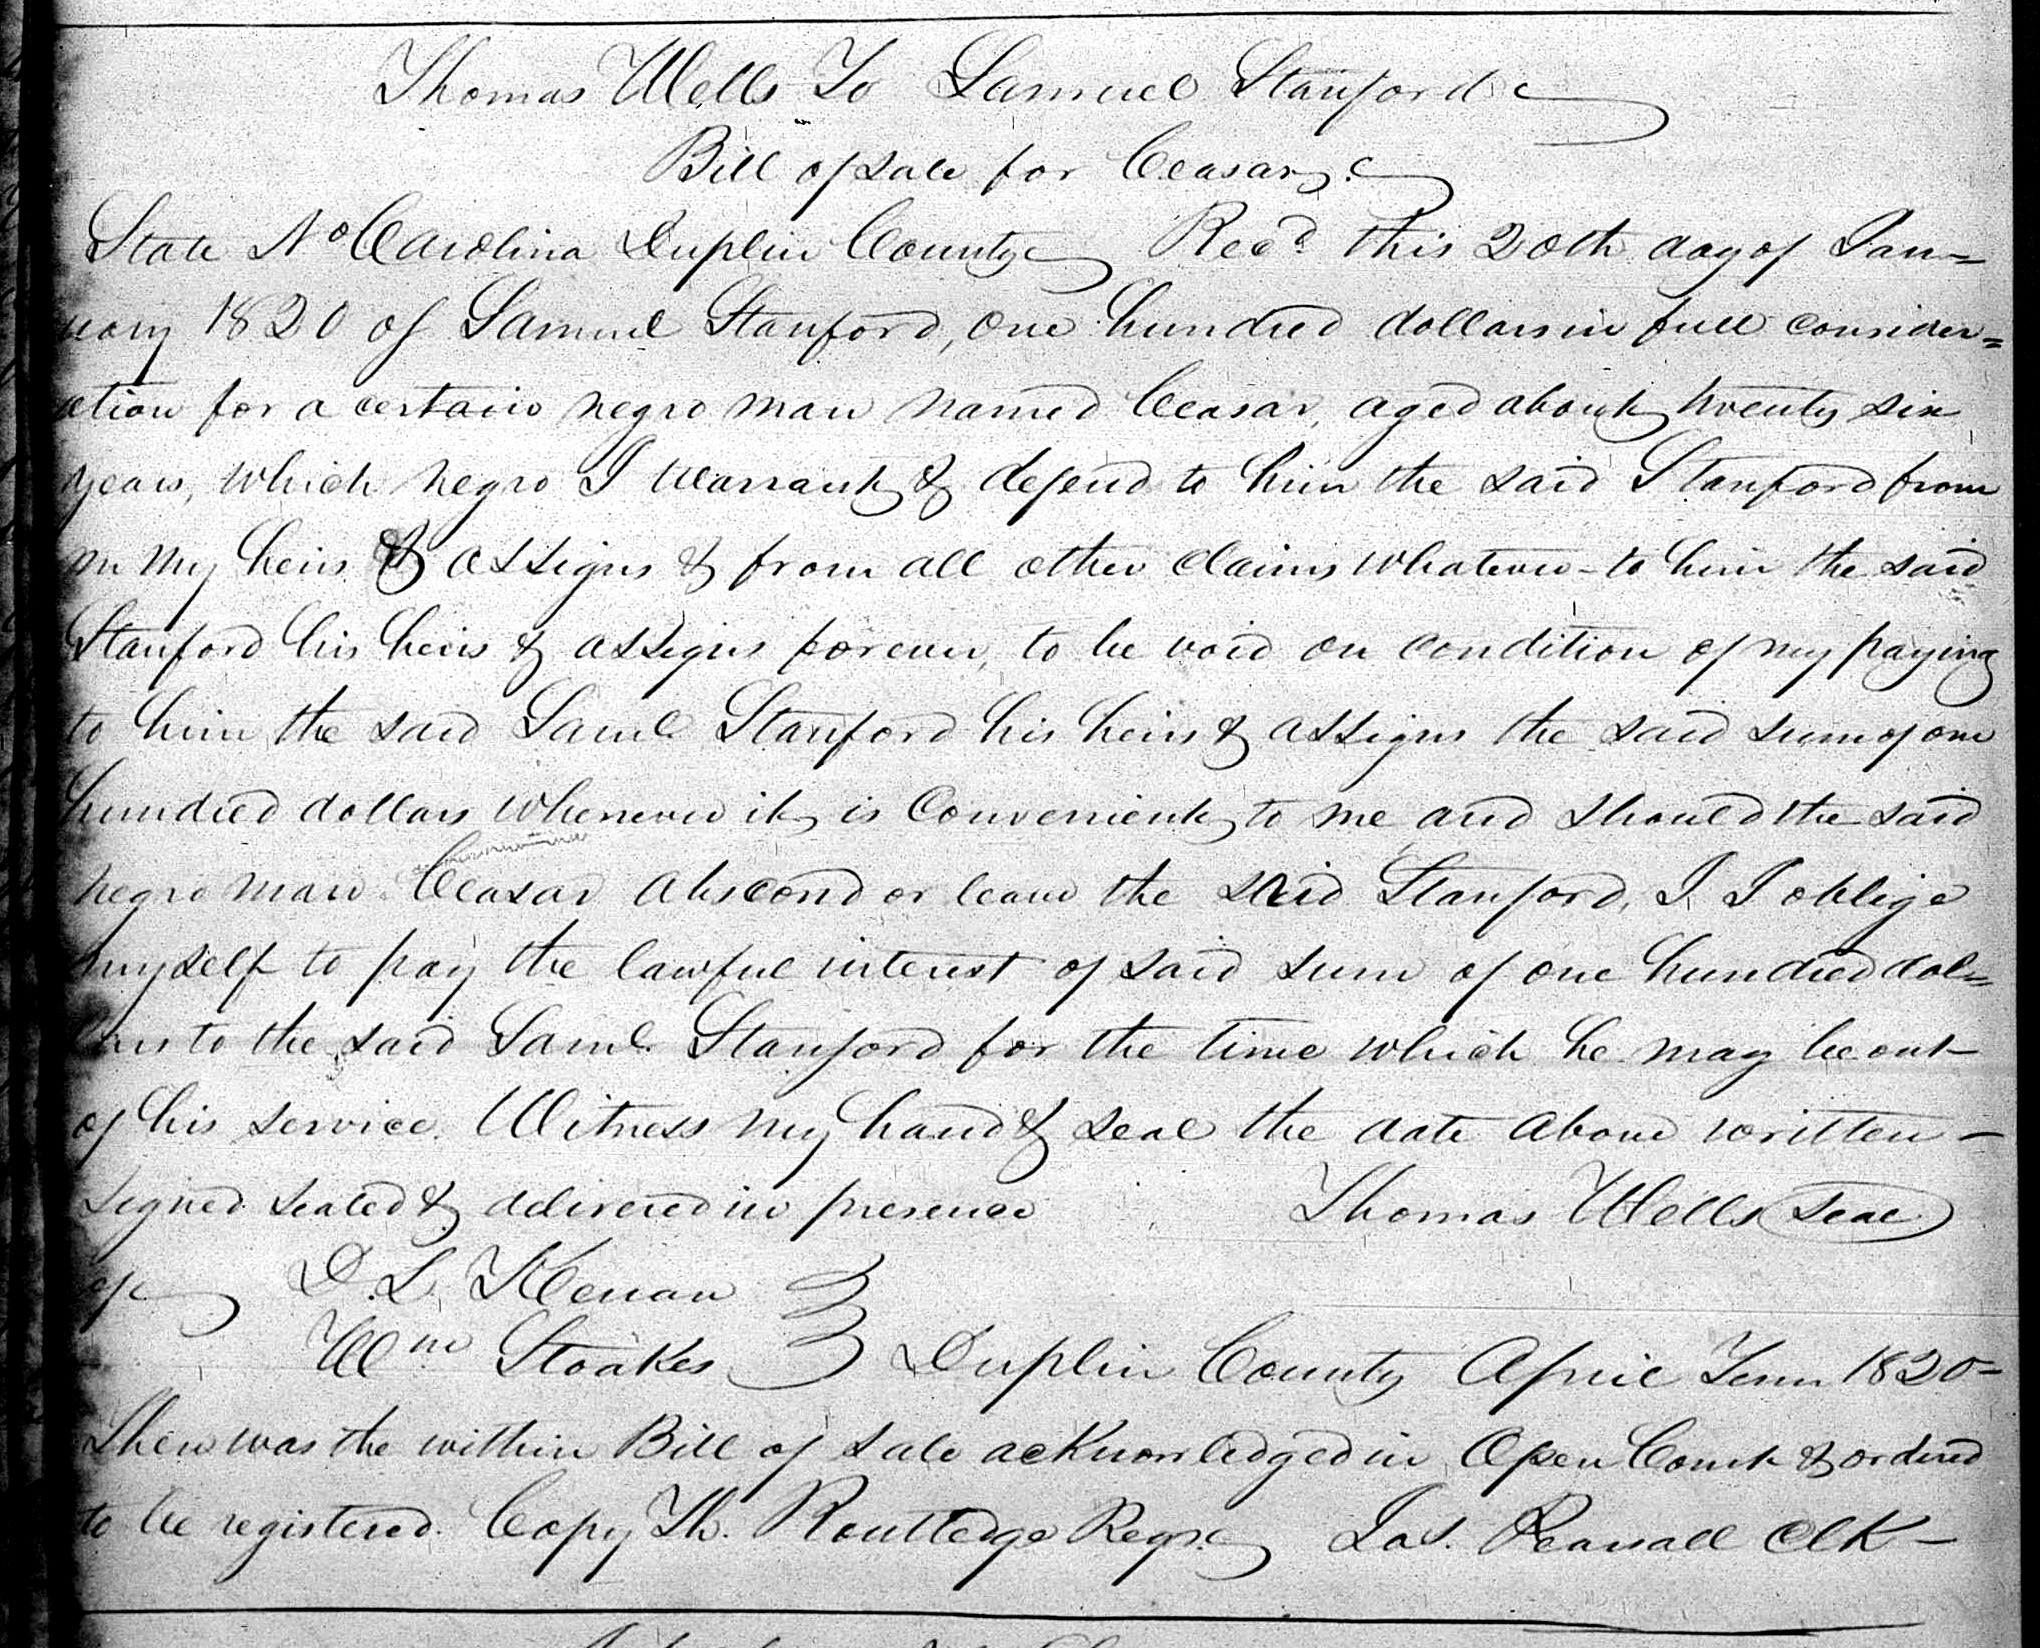 Thomas Wells To Samuel Stanford
Bill of sale for Ceasar
State No Carolina Duplin County Recd this 20th day of Jan=
uary 1820 of Samuel Stanford, one hundred dollars in full consider=
ation for a certain negro man named Ceasar, aged about twenty six
years, which negro I warrant & defend to him the said Stanford from
me my heirs & assigns & from all other claims whatever - to him the said
Stanford his heirs & assigns forever, to be void on condition of my paying
to him the said Saml. Stanford his heirs & assigns the said sum of one
hundred dollars whenever it is convenient to me and should the said
negro man Ceasar abscond or leave the said Stanford, I I oblige
myself to pay the lawful interest of said sum of one hundred dol=
lars to the said Saml. Stanford for the time which he may be out
of his service. Witness my hand & seal the date above written -
signed sealed & delivered in presence Thomas Wells seal
of D. L. Kenan
Wm Stoakes Duplin County April Term 1820-
Then was the within Bill of sale acknowledged in Open Court & ordered
to be registered. Copy Th. Routledge Regr. Jas. Pearsall Clk -